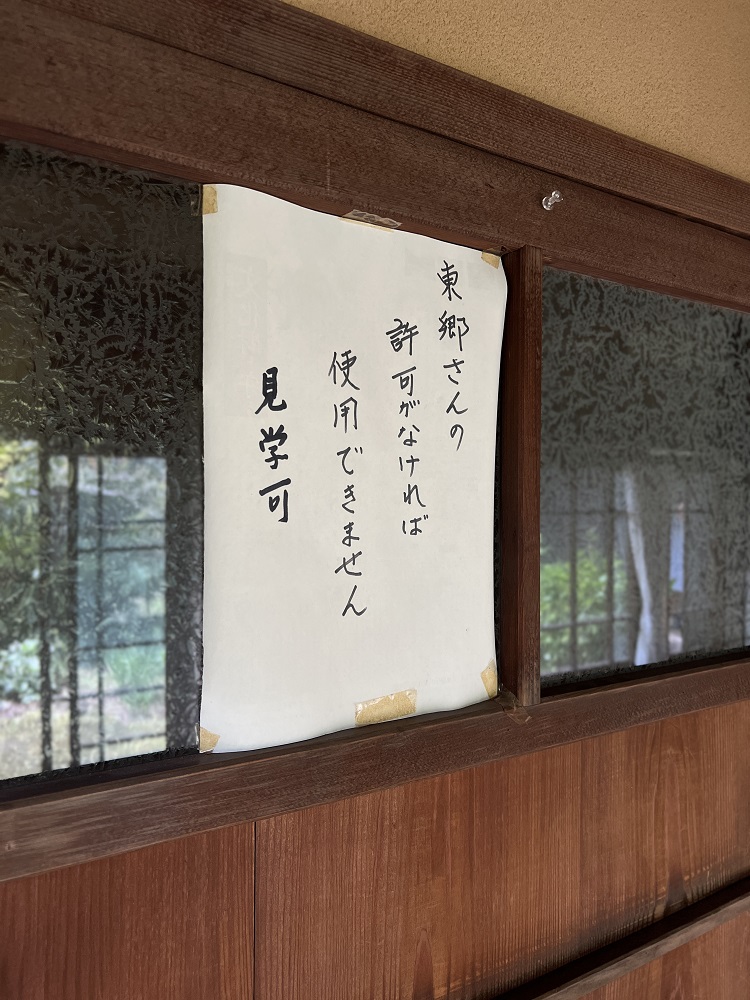 東郷さんの
許可がなければ
使用できません
見学可